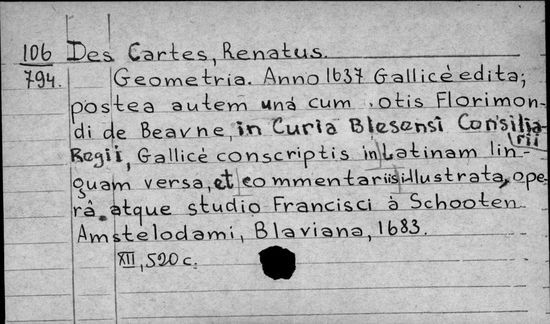 106 Des Cartes, Renatus.
794. Geometria. Anno 1637 Gallicè edita;
postea autem unà cum otis Florimon-
di de Beavne, in Curia Blesensi Consilia-
rii
Regii, Gallicè conscriptis in Latinam lin-
guam versa, et commentariis illustrata, ope-
râ atque studio Francisci à Schooten
Amstelodami, Blaviana, 1683.
XII, 520 c.